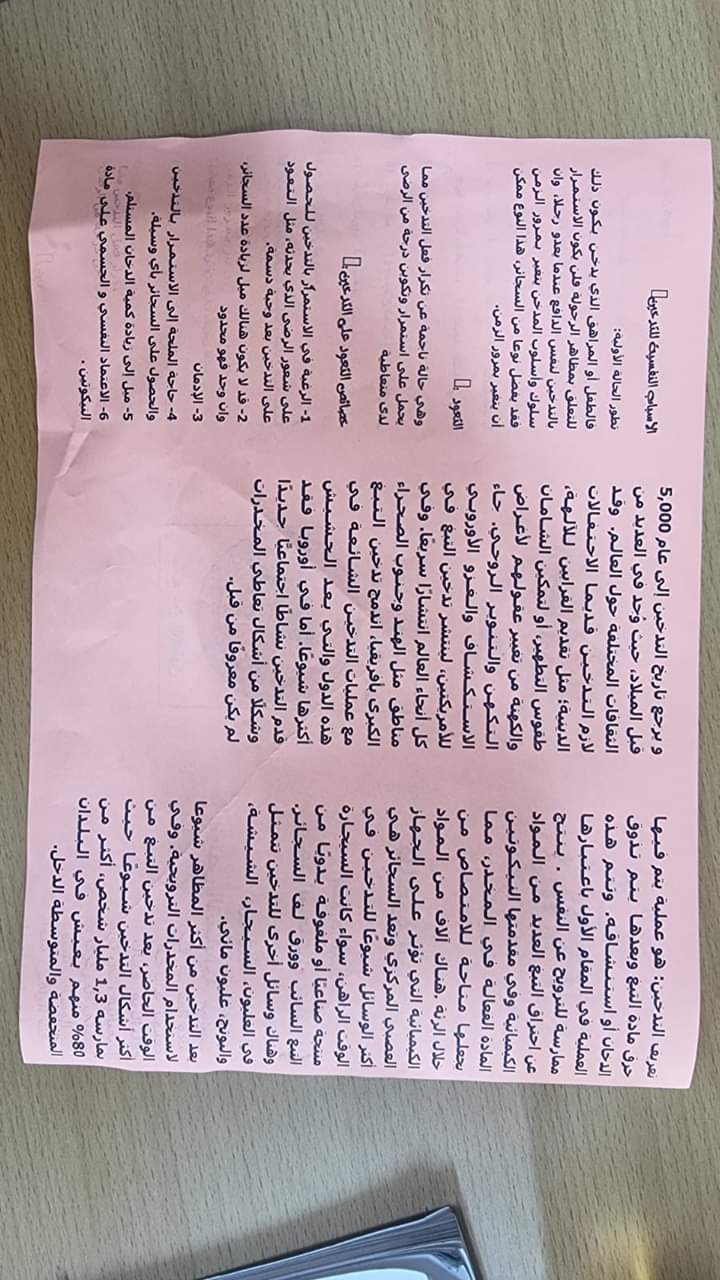 تعريف التدخين: هو عملية يتم فيها
حرق مادة التبغ وبعدها يتم تذوق
الدخان أو استنشاقه. وتتم هذه
العملية في المقام الأول باعتبارها
ممارسة للترويح عن النفس . ينتج
عن احتراق التبغ العديد من المواد
الكيميائية وفي مقدمتها النيكوتين
المادة الفعالة في المخدر، مما
يجعلها متاحة للامتصاص من
خلال الرئة .هناك آلاف من المواد
الكيميائية التي تؤثر على الجهاز
العصبي المركزي وتعد السجائر هي
أكثر الوسائل شيوعًا للتدخين في
الوقت الراهن، سواء كانت السيجارة
منتجة صناعيًا أو ملفوفة يدويًا من
التبغ السائب وورق لف السجائر.
وهناك وسائل أخرى للتدخين تتمثل
في الغليون، السيجار، الشيشة،
والبونج، غليون مائي.
يعد التدخين من أكثر المظاهر شيوعا
لاستخدام المخدرات الترويحية. وفي
الوقت الحاضر، يعد تدخين التبغ من
أكثر أشكال التدخين شيوعًا حيث
يمارسه 1,3 مليار شخص، أكثر من
80% منهم يعيش في البلدان
المنخفضة والمتوسطة الدخل.
و يرجع تاريخ التدخين إلى عام 5,000
قبل الميلاد، حيث وجد في العديد من
الثقافات المختلفة حول العالم. وقد
لازم التدخين قديما الاحتفالات
الدينية؛ مثل تقديم القرابين للآلهة،
طقوس التطهير، أو لتمكين الشامان
والكهنة من تغيير عقولهم لأغراض
التكهن والتنوير الروحي. جاء
الاستكشاف والغزو الأوروبي
للأمريكتين، لينتشر تدخين التبغ في
كل أنحاء العالم انتشارًا سريعًا. وفي
مناطق مثل الهند وجنوب الصحراء
الكبرى بأفريقيا، اندمج تدخين التبغ
مع عمليات التدخين الشائعة في
هذه الدول والتي يعد الحشيش
أكثرها شيوعًا. أما في أوروبا فقد
قدم التدخين نشاطًا اجتماعيًا جديدًا
وشكلاً من أشكال تعاطي المخدرات
لم يكن معروفًا من قبل.
الأسباب النفسية للتدخين
تطور الحالة الأولية:
فالطفل أو المراهق الذي يدخن يكون ذلك
للتعلق بمظاهر الرجولة فلن يكون الاستمرار
بالتدخين لنفس الدافع عندما يعدو رجلا، وإن
سلوك وأسلوب المدخن يتغير بمرور الزمن
فقد يفضل نوعا من السجائر، هذا النوع ممكن
أن يتغير بمرور الزمن.
التعود
وهي حالة ناجمة عن تكرار فعل التدخين مما
يحمل على استمرار وتكوين درجة من الرضى
لدى متعاطية
خصائص التعود على التدخين
1- الرغبة في الاستمرار بالتدخين للحصول
على شعور الرضى الذي يحدثه، مثل التعود
على التدخين بعد وجبة دسمة.
2- قد لا يكون هنالك ميل لزيادة عدد السجائر،
وإن وجد فهو محدود
3- الإدمان
4- حاجة الملحة إلى الاستمرار بالتدخين
والحصول على السجائر بأي وسيلة.
5- ميل إلى زيادة كمية الدخان المستلم.
6- الاعتماد النفسي و الجسمي على مادة
النيكوتين .